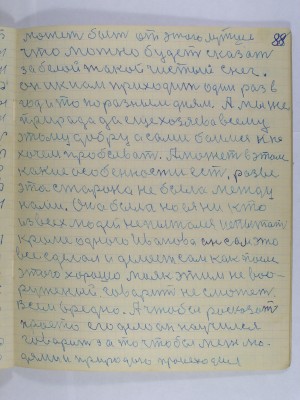 88
может быть от этого лучше
что можно будет сказать
за белой такой чистый снег.
он и к нам приходит один раз в
году то по разным дням. А мы же
природа да еще хозяева всему
этому добру а сами боимся и не
хочем пробовать. А может в этом
какие особенности есть, разве
эта сторона не была между
нами. Она была но ея ни кто
из всех людей не пытался испытать
кроме одного Иванова он сам это
все сделал и делает сам как после
этого хорошо мол к этим не воо-
руженый говорит не сможет.
Всем вредно. А чтобы рассказать
просто его дело он научился
говорить за то чтобы меж лю-
дями и природою происходил